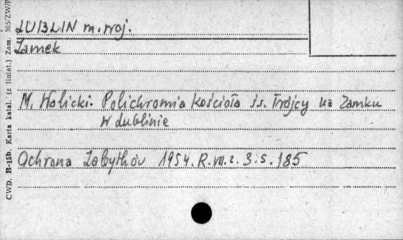 LUBLIN m. woj.
Zamek
M. Walicki. Polichromia kościoła śś. Trójcy na Zamku
w Lublinie
Ochrona Zabytków 1954. R. VII. z. 3. s. 185
CWD. B-15b. Karta katal. (z liniat.) Zam.